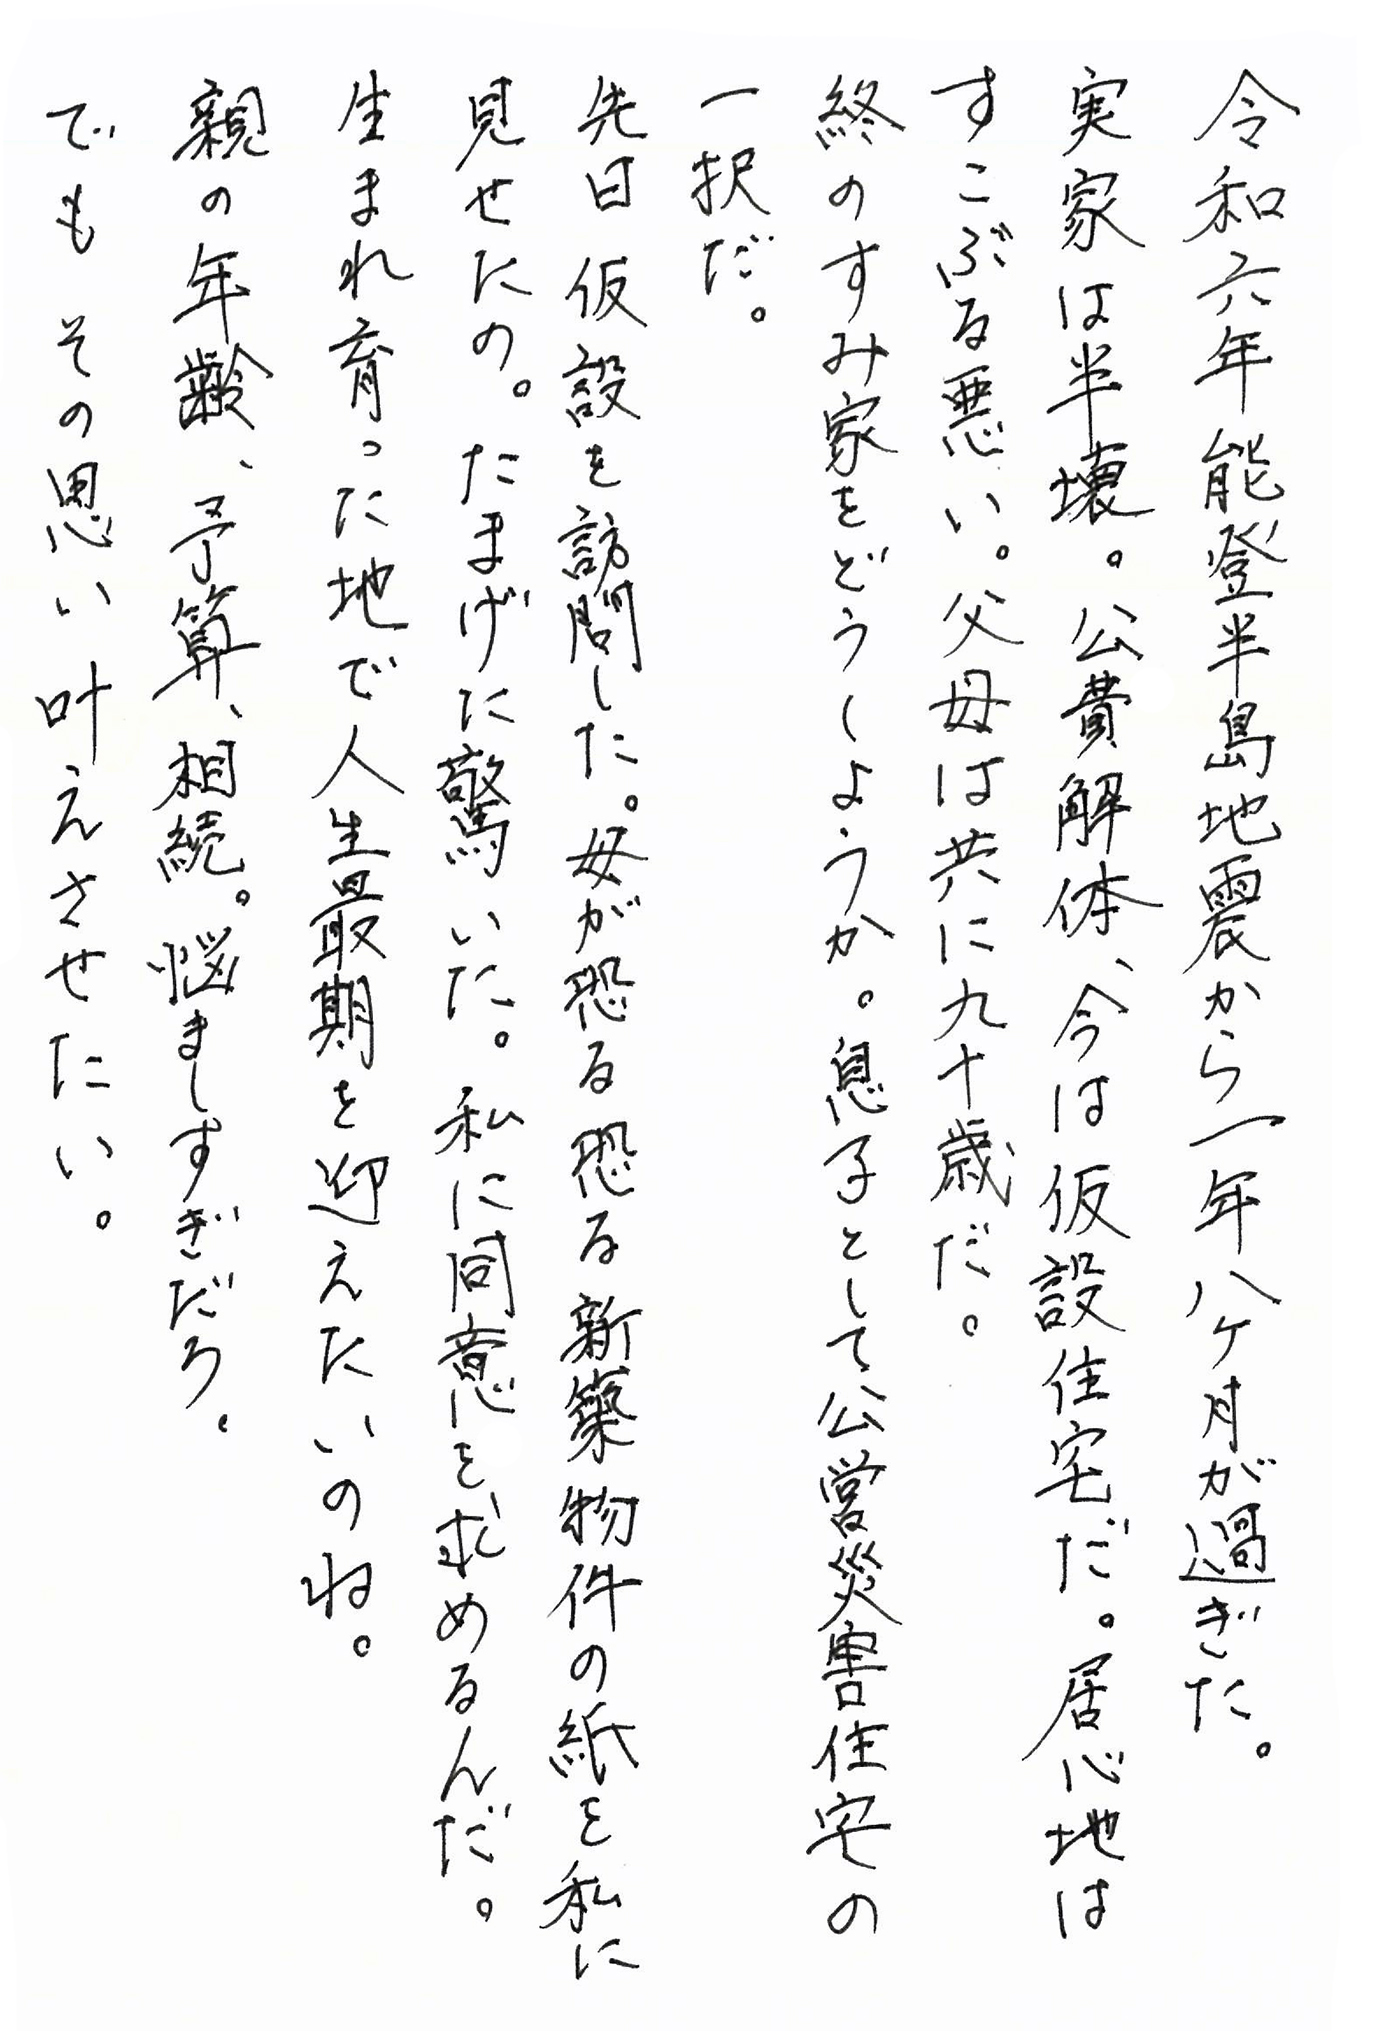 令和六年能登半島地震から一年八ヶ月が過ぎた。
実家は半壊。公費解体、今は仮設住宅だ。居心地は
すこぶる悪い。父母は共に九十歳だ。
終のすみ家をどうしようか。息子として公営災害住宅の
一択だ。
先日仮設を訪問した。母が恐る恐る新築物件の紙を私に
見せたの。たまげに驚いた。私に同意を求めるんだ。
生まれ育った地で人生最期を迎えたいのね。
親の年齢、予算、相続。悩ましすぎだろ。
でもその思い叶えさせたい。